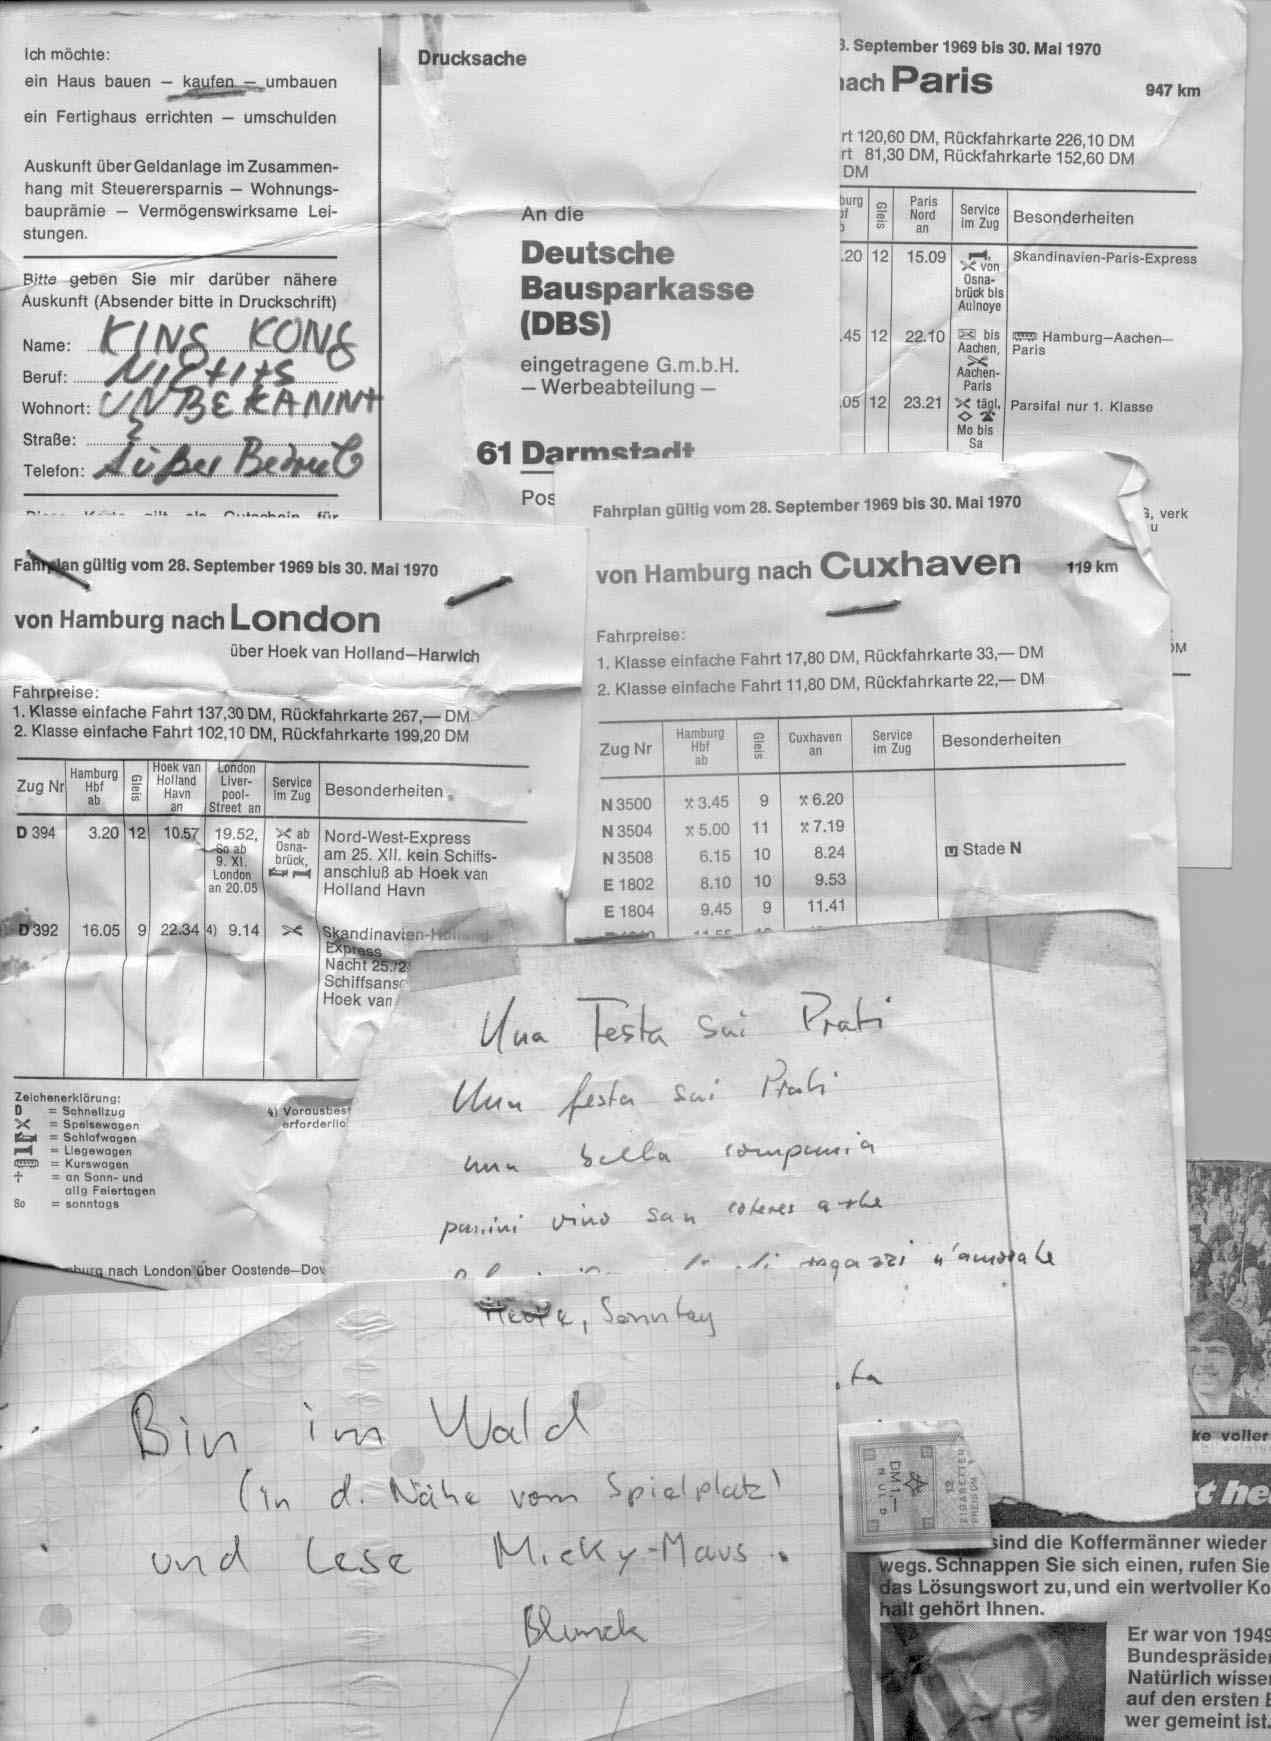 Ich möchte:
ein Haus bauen – kaufen – umbauen
ein Fertighaus errichten – umschulden
Auskunft über Geldanlage im Zusammen-
hang mit Steuerersparnis – Wohnungs-
bauprämie – Vermögenswirksame Lei-
stungen.
Bitte geben Sie mir darüber nähere
Auskunft (Absender bitte in Druckschrift)
Name: KING KONG
Beruf: NICHTS
Wohnort: UNBEKANNT
Straße: ?
Telefon: Außer Betrieb
Drucksache
An die
Deutsche
Bausparkasse
(DBS)
eingetragene G.m.b.H.
– Werbeabteilung –
61 Darmstadt
Pos
. September 1969 bis 30. Mai 1970
nach Paris 947 km
rt 120,60 DM, Rückfahrkarte 226,10 DM
rt 81,30 DM, Rückfahrkarte 152,60 DM
DM
burg Gleis Paris Nord an Service im Zug Besonderheiten
.20 12 15.09 von Osna-brück bis Aulnoye Skandinavien-Paris-Express
.45 12 22.10 bis Aachen, Aachen-Paris Hamburg–Aachen–Paris
.05 12 23.21 tägl, Mo bis Sa Parsifal nur 1. Klasse
, verk
u
Fahrplan gültig vom 28. September 1969 bis 30. Mai 1970
von Hamburg nach London
über Hoek van Holland–Harwich
Fahrpreise:
1. Klasse einfache Fahrt 137,30 DM, Rückfahrkarte 267,— DM
2. Klasse einfache Fahrt 102,10 DM, Rückfahrkarte 199,20 DM
Zug Nr Hamburg Hbf ab Gleis Hoek van Holland Havn an London Liver-pool-Street an Service im Zug Besonderheiten
D 394 3.20 12 10.57 19.52, So ab 9. XI. London an 20.05 ab Osna-brück, Nord-West-Express
am 25. XII. kein Schiffs-
anschluß ab Hoek van
Holland Havn
D 392 16.05 9 22.34 4) 9.14 Skandinavien-Holland-
Express
Nacht 25./2
Schiffsansc
Hoek van
Zeichenerklärung:
D = Schnellzug
= Speisewagen
= Schlafwagen
= Liegewagen
= Kurswagen
† = an Sonn- und
allg Feiertagen
So = sonntags
4) Vorausbes
erforderlic
burg nach London über Oostende–Dov
Fahrplan gültig vom 28. September 1969 bis 30. Mai 1970
von Hamburg nach Cuxhaven 119 km
Fahrpreise:
1. Klasse einfache Fahrt 17,80 DM, Rückfahrkarte 33,— DM
2. Klasse einfache Fahrt 11,80 DM, Rückfahrkarte 22,— DM
Zug Nr Hamburg Hbf ab Gleis Cuxhaven an Service im Zug Besonderheiten
N 3500 3.45 9 6.20
N 3504 5.00 11 7.19
N 3508 6.15 10 8.24 Stade N
E 1802 8.10 10 9.53
E 1804 9.45 9 11.41
Una Festa sui Prati
Una festa sui Prati
una bella compania
panini vino
ragazzi n'amorate
Heute, Sonntag
Bin im Wald
(in d. Nähe vom Spielplatz)
und lese Micky-Maus.
Blunck
DM 1,—
12
ZIGARETTEN
ke voller
t he
sind die Koffermänner wieder
wegs. Schnappen Sie sich einen, rufen Sie
das Lösungswort zu, und ein wertvoller Ko
halt gehört Ihnen.
Er war von 1949
Bundespräside
Natürlich wisse
auf den ersten B
wer gemeint ist.